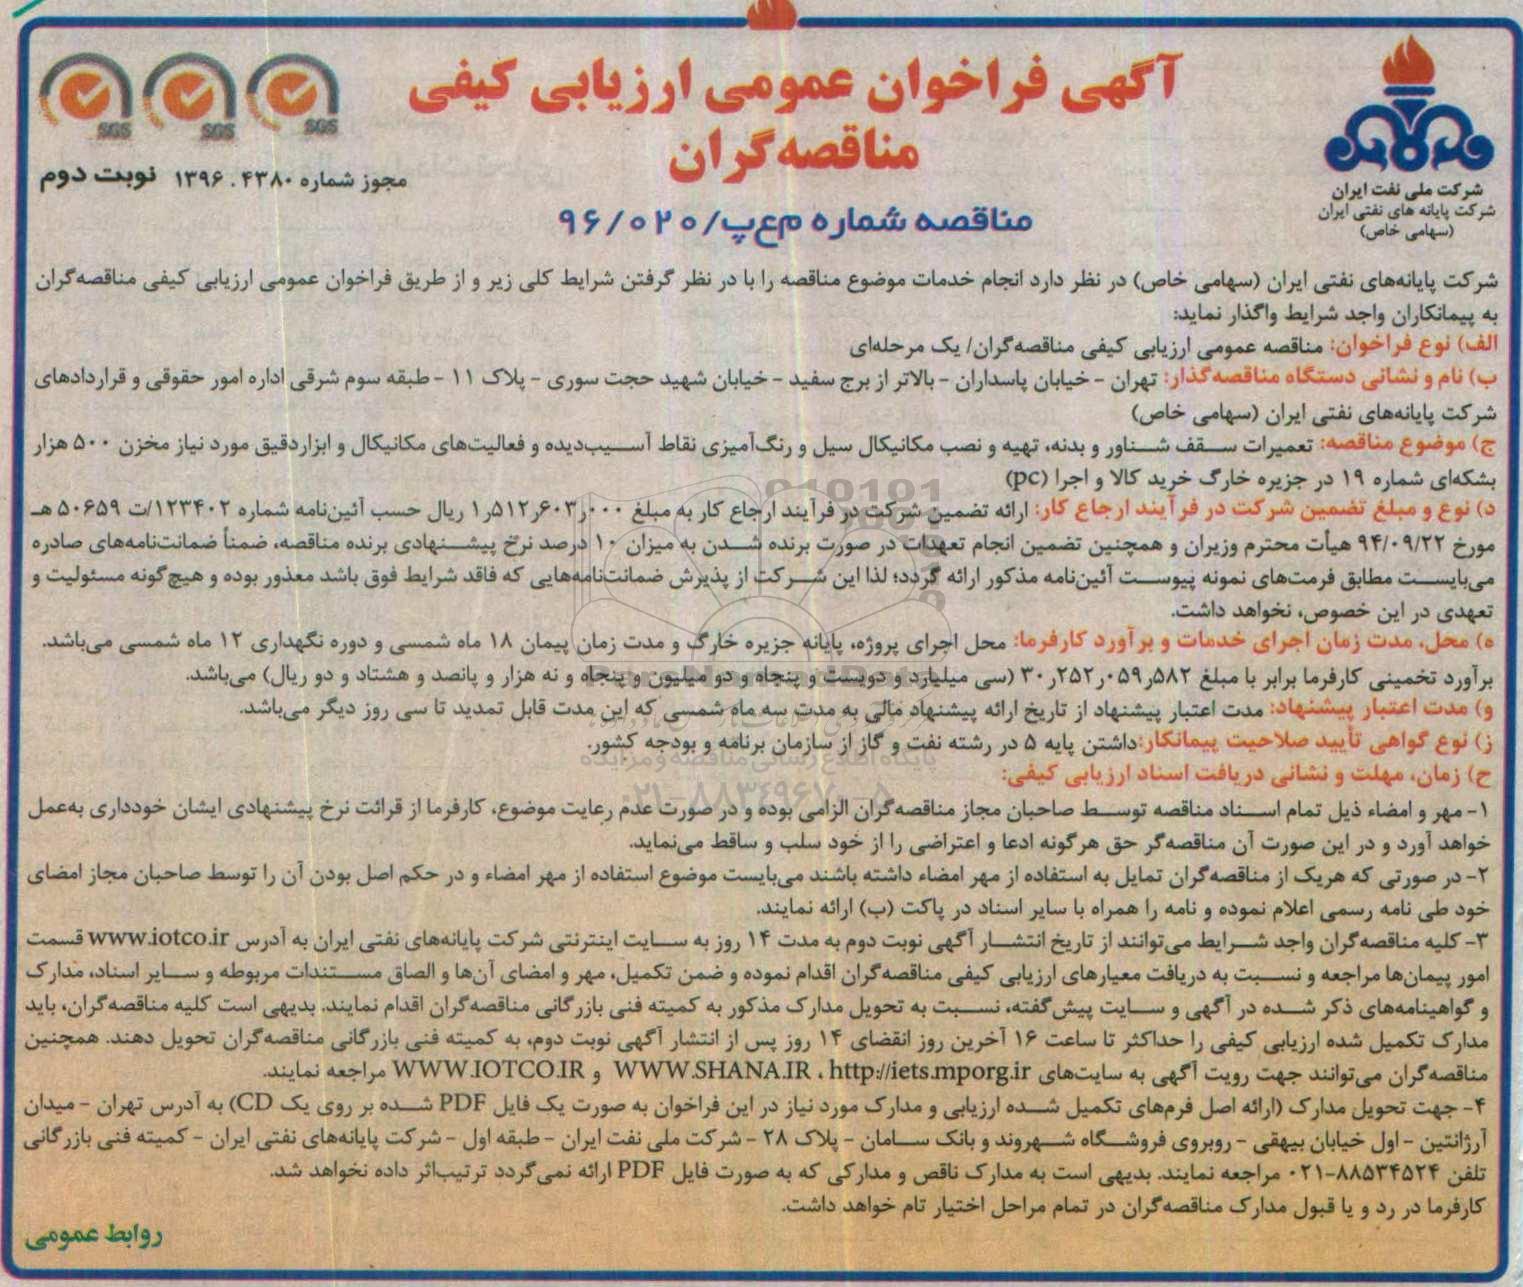 آگهی فراخوان عمومی ارزیابی کیفی
مناقصه‌گران
SGS SGS SGS
مجوز شماره ۱۳۹۶.۴۳۸۰ نوبت دوم
مناقصه شماره م‌ع‌پ/۹۶/۰۲۰
شرکت ملی نفت ایران
شرکت پایانه های نفتی ایران
(سهامی خاص)
شرکت پایانه‌های نفتی ایران (سهامی خاص) در نظر دارد انجام خدمات موضوع مناقصه را با در نظر گرفتن شرایط کلی زیر و از طریق فراخوان عمومی ارزیابی کیفی مناقصه‌گران
به پیمانکاران واجد شرایط واگذار نماید:
الف) نوع فراخوان: مناقصه عمومی ارزیابی کیفی مناقصه‌گران/ یک مرحله‌ای
ب) نام و نشانی دستگاه مناقصه‌گذار: تهران - خیابان پاسداران - بالاتر از برج سفید - خیابان شهید حجت سوری - پلاک ۱۱ - طبقه سوم شرقی اداره امور حقوقی و قراردادهای
شرکت پایانه‌های نفتی ایران (سهامی خاص)
ج) موضوع مناقصه: تعمیرات سقف شناور و بدنه، تهیه و نصب مکانیکال سیل و رنگ‌آمیزی نقاط آسیب‌دیده و فعالیت‌های مکانیکال و ابزاردقیق مورد نیاز مخزن ۵۰۰ هزار
بشکه‌ای شماره ۱۹ در جزیره خارگ خرید کالا و اجرا (pc)
د) نوع و مبلغ تضمین شرکت در فرآیند ارجاع کار: ارائه تضمین شرکت در فرآیند ارجاع کار به مبلغ ۱٫۵۱۲٫۶۰۳٫۰۰۰ ریال حسب آئین‌نامه شماره ۱۲۳۴۰۲/ت ۵۰۶۵۹ هـ
مورخ ۹۴/۰۹/۲۲ هیأت محترم وزیران و همچنین تضمین انجام تعهدات در صورت برنده شدن به میزان ۱۰ درصد نرخ پیشنهادی برنده مناقصه، ضمناً ضمانت‌نامه‌های صادره
می‌بایست مطابق فرمت‌های نمونه پیوست آئین‌نامه مذکور ارائه گردد؛ لذا این شرکت از پذیرش ضمانت‌نامه‌هایی که فاقد شرایط فوق باشد معذور بوده و هیچ‌گونه مسئولیت و
تعهدی در این خصوص، نخواهد داشت.
ه) محل، مدت زمان اجرای خدمات و برآورد کارفرما: محل اجرای پروژه، پایانه جزیره خارگ و مدت زمان پیمان ۱۸ ماه شمسی و دوره نگهداری ۱۲ ماه شمسی می‌باشد.
برآورد تخمینی کارفرما برابر با مبلغ ۳۰٫۲۵۲٫۰۵۹٫۵۸۲ (سی میلیارد و دویست و پنجاه و دو میلیون و پنجاه و نه هزار و پانصد و هشتاد و دو ریال) می‌باشد.
و) مدت اعتبار پیشنهاد: مدت اعتبار پیشنهاد از تاریخ ارائه پیشنهاد مالی به مدت سه ماه شمسی که این مدت قابل تمدید تا سی روز دیگر می‌باشد.
ز) نوع گواهی تأیید صلاحیت پیمانکار: داشتن پایه ۵ در رشته نفت و گاز از سازمان برنامه و بودجه کشور.
ح) زمان، مهلت و نشانی دریافت اسناد ارزیابی کیفی:
۱- مهر و امضاء ذیل تمام اسناد مناقصه توسط صاحبان مجاز مناقصه‌گران الزامی بوده و در صورت عدم رعایت موضوع، کارفرما از قرائت نرخ پیشنهادی ایشان خودداری به‌عمل
خواهد آورد و در این صورت آن مناقصه‌گر حق هرگونه ادعا و اعتراضی را از خود سلب و ساقط می‌نماید.
۲- در صورتی که هریک از مناقصه‌گران تمایل به استفاده از مهر امضاء داشته باشند می‌بایست موضوع استفاده از مهر امضاء و در حکم اصل بودن آن را توسط صاحبان مجاز امضای
خود طی نامه رسمی اعلام نموده و نامه را همراه با سایر اسناد در پاکت (ب) ارائه نمایند.
۳- کلیه مناقصه‌گران واجد شرایط می‌توانند از تاریخ انتشار آگهی نوبت دوم به مدت ۱۴ روز به سایت اینترنتی شرکت پایانه‌های نفتی ایران به آدرس www.iotco.ir قسمت
امور پیمان‌ها مراجعه و نسبت به دریافت معیارهای ارزیابی کیفی مناقصه‌گران اقدام نموده و ضمن تکمیل، مهر و امضای آن‌ها و الصاق مستندات مربوطه و سایر اسناد، مدارک
و گواهینامه‌های ذکر شده در آگهی و سایت پیش‌گفته، نسبت به تحویل مدارک مذکور به کمیته فنی بازرگانی مناقصه‌گران اقدام نمایند. بدیهی است کلیه مناقصه‌گران، باید
مدارک تکمیل شده ارزیابی کیفی را حداکثر تا ساعت ۱۶ آخرین روز انقضای ۱۴ روز پس از انتشار آگهی نوبت دوم، به کمیته فنی بازرگانی مناقصه‌گران تحویل دهند. همچنین
مناقصه‌گران می‌توانند جهت رویت آگهی به سایت‌های WWW.SHANA.IR ، http://iets.mporg.ir و WWW.IOTCO.IR مراجعه نمایند.
۴- جهت تحویل مدارک (ارائه اصل فرم‌های تکمیل شده ارزیابی و مدارک مورد نیاز در این فراخوان به صورت یک فایل PDF شده بر روی یک CD) به آدرس تهران - میدان
آرژانتین - اول خیابان بیهقی - روبروی فروشگاه شهروند و بانک سامان - پلاک ۲۸ - شرکت ملی نفت ایران - طبقه اول - شرکت پایانه‌های نفتی ایران - کمیته فنی بازرگانی
تلفن ۸۸۵۳۴۵۲۴-۰۲۱ مراجعه نمایند. بدیهی است به مدارک ناقص و مدارکی که به صورت فایل PDF ارائه نمی‌گردد ترتیب‌اثر داده نخواهد شد.
کارفرما در رد و یا قبول مدارک مناقصه‌گران در تمام مراحل اختیار تام خواهد داشت.
روابط عمومی
پایگاه اطلاع رسانی مناقصه و مزایده
۰۲۱-۸۸۳۴۹۶۷۰-۵